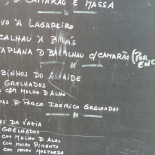 D CAMARÃO E MASSA
VO À LAGAREIRO
CALHAU À BRÁS
TAPLANA D BACALHAU C/CAMARÃO (POR
ENC
BINHOS DO
GRELHADOS
COM MOLHO D ALHO
DE PORCO IBÉRICO GRELHADAS
DA VAZIA
GRELHADOS
COM MOLHO D ALHO
COM MOLHO PIMENTA
COM MOLHO MOSTARDA